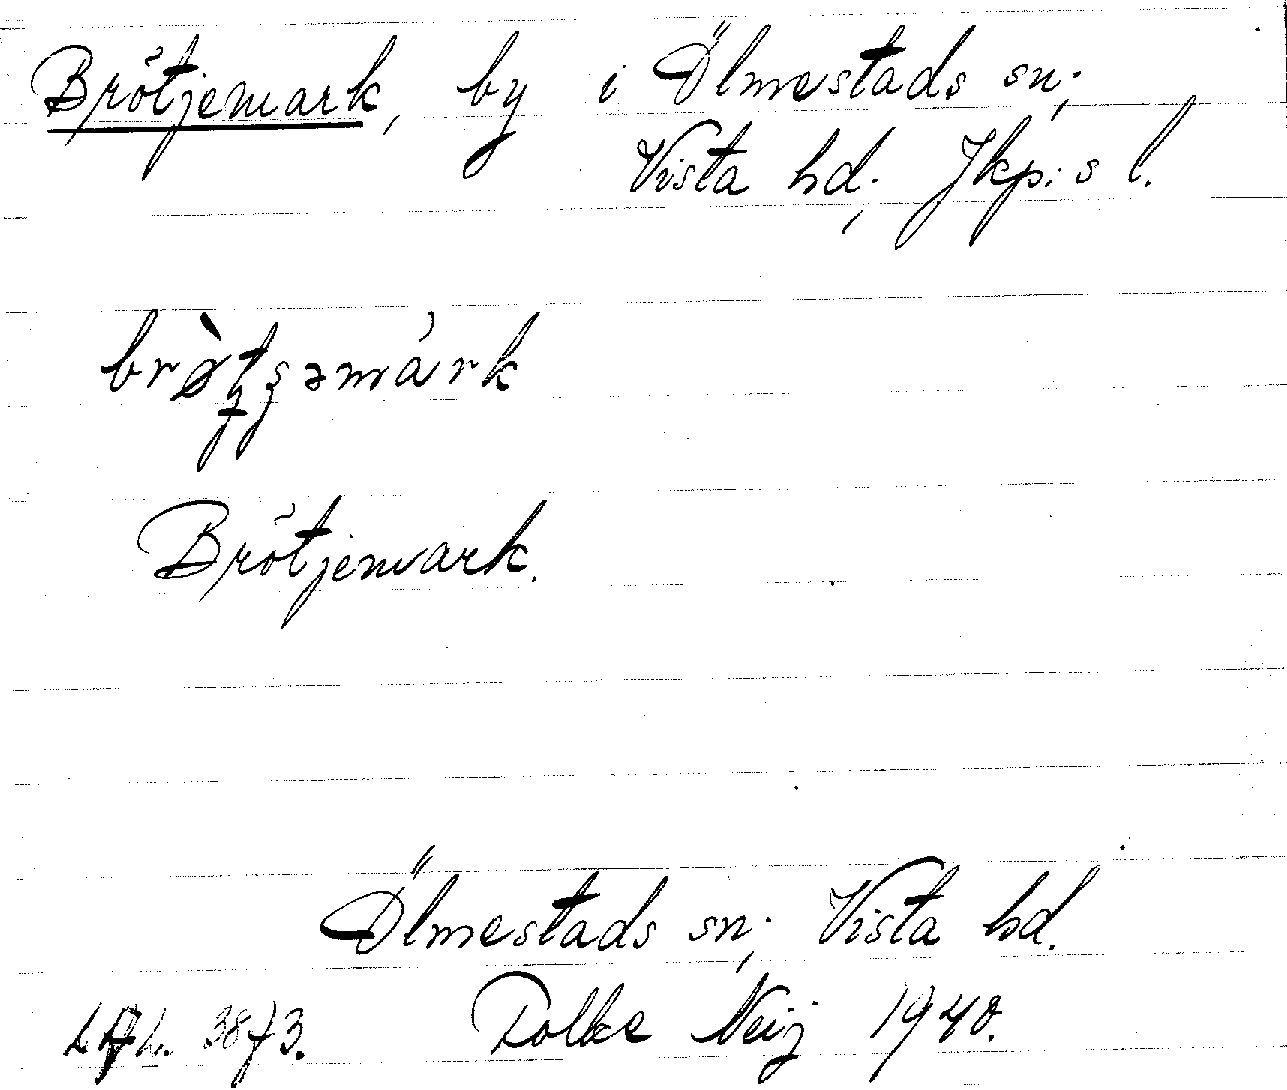 Brötjemark, by i Ölmestads sn;
Vista hd; Jkp:s l.
Brötjemark.
Ölmestads sn; Vista hd.
3873. Folke Neij 1940.